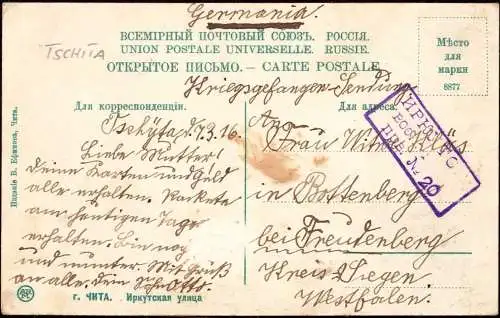 Germania.
TSCHITA
ВСЕМІРНЫЙ ПОЧТОВЫЙ СОЮЗЪ. РОССІЯ.
UNION POSTALE UNIVERSELLE. RUSSIE.
ОТКРЫТОЕ ПИСЬМО. — CARTE POSTALE
Мѣсто
для
марки
8877
Kriegsgefangen-Sendung
Для корреспонденціи.
Для адреса.
Tschyta, d. 7.3.16
Liebe Mutter!
Deine Karten und Geld
alle erhalten. Packete
am heutigen Tage
erhalten. Bin noch
und munter. Mit Gruß
an alle. dein Otto.
An
Frau Witwe Klös
in Bottenberg
bei Freudenberg
Kreis Siegen
Westfalen.
ИРКУТС
ВОЕН
№ 20
Изданіе В. Ефимова, Чита.
г. ЧИТА. Иркутская улица